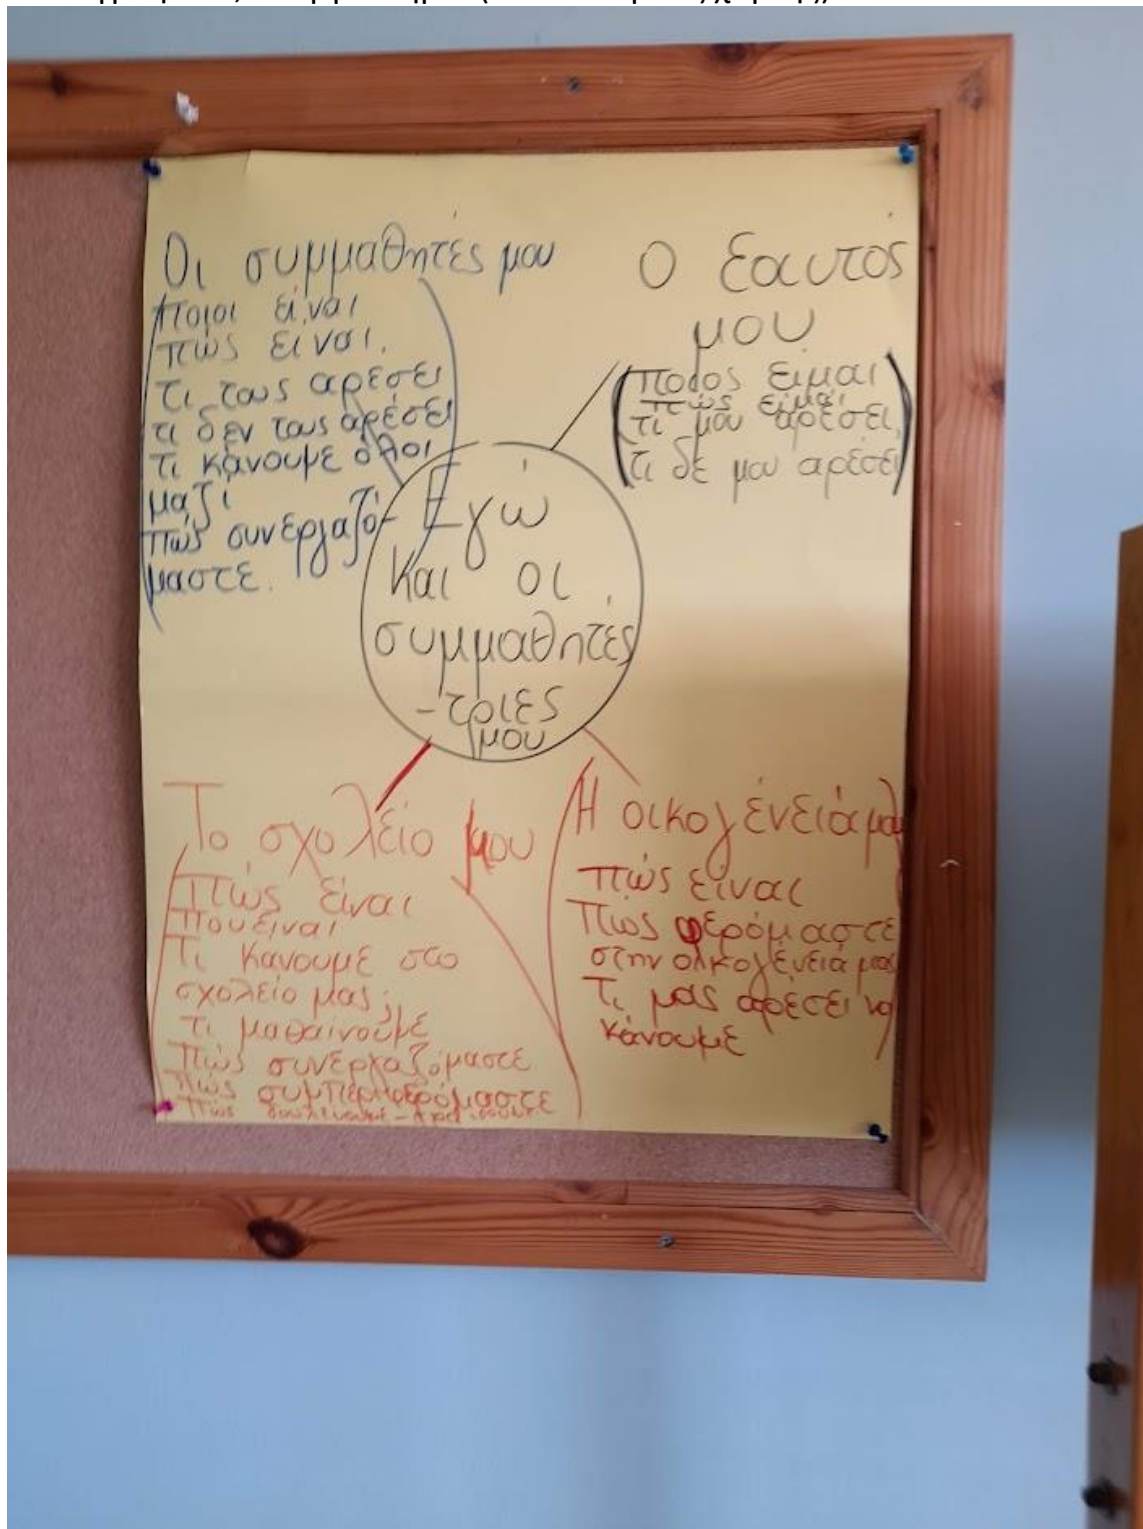 Οι συμμαθητές μου
ποιοι είναι
πώς είναι.
τι τους αρέσει
τι δεν τους αρέσει
τι κάνουμε όλοι
μαζί
πώς συνεργαζό-
μαστε.
Ο εαυτός
μου
(ποιος είμαι
πώς είμαι
τι μου αρέσει,
τι δε μου αρέσει)
Εγώ
και οι
συμμαθητές
-τριες
μου
Το σχολείο μου
Πώς είναι
που είναι
Τι κάνουμε στο
σχολείο μας;
τι μαθαίνουμε
Πώς συνεργαζόμαστε
Πώς συμπεριφερόμαστε
Πώς
Η οικογένειά μου
πώς είναι
Πώς φερόμαστε
στην οικογένειά μας
Τι μας αρέσει να
κάνουμε